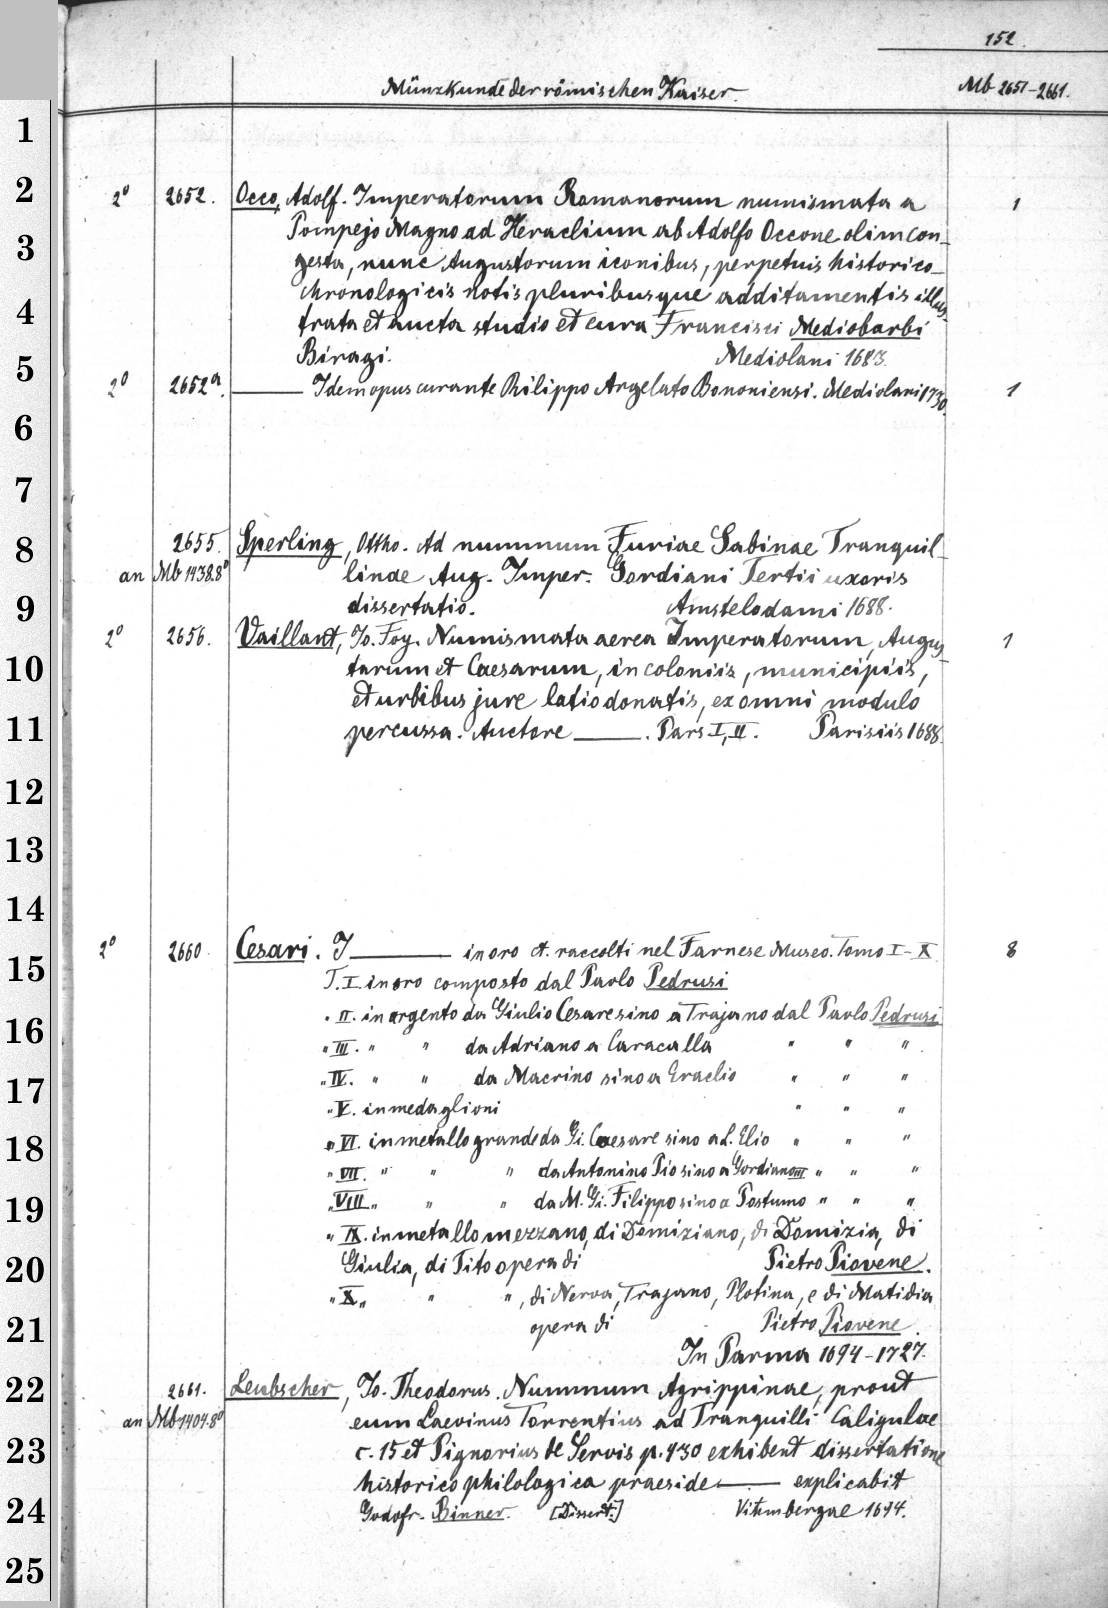 152.
Münzkunde der römischen Kaiser.
Mb 2651-2661.
1
2
3
4
5
6
7
8
9
10
11
12
13
14
15
16
17
18
19
20
21
22
23
24
25
2° 2652. Occo, Adolf. Imperatorum Romanorum numismata a 1
Pompejo Magno ad Heraclium ab Adolfo Occone olim con-
gesta, nunc Augustorum iconibus, perpetuis historico-
chronologicis notis pluribusque additamentis illus-
trata et aucta studio et cura Francisci Mediobarbi
Biragi. Mediolani 1683.
2° 2652a. ——— Idem opus curante Philippo Argelato Bononiensi. Mediolani 1730. 1
2655. Sperling, Ottho. Ad nummum Furiae Sabinae Tranquil-
an Mb 1438.8° linae Aug. Imper. Gordiani Tertii uxoris
dissertatio. Amstelodami 1688.
2° 2656. Vaillant, Jo. Foy. Numismata aerea Imperatorum, Augus- 1
tarum et Caesarum, in coloniis, municipiis,
et urbibus jure latio donatis, ex omni modulo
percussa. Auctore ———. Pars I, II. Parisiis 1688.
2° 2660. Cesari. I ——— in oro et. raccolti nel Farnese Museo. Tomo I-X 8
T. I. in oro composto dal Paolo Pedrusi
" II. in argento da Giulio Cesare sino a Trajano dal Paolo Pedrusi
" III. " " da Adriano a Caracalla " " ".
" IV. " " da Macrino sino a Eraclio " " "
" V. in medaglioni " " "
" VI. in metallo grande da Gi. Caesare sino a L. Elio " " "
" VII. " " " da Antonino Pio sino a Gordiano III " " "
" VIII " " " da M. Gi. Filippo sino a Postumo " " "
" IX. in metallo mezzano, di Domiziano, di Domizia, di
Giulia, di Tito opera di Pietro Piovene.
" X " " ", di Nerva, Trajano, Plotina, e di Matidia
opera di Pietro Piovene.
In Parma 1694-1727.
2661. Leubscher, Jo. Theodorus. Nummum Agrippinae, prout
an Mb 1404.8° eum Laevinus Torrentius ad Tranquilli Caligulae
c. 15 et Pignorius de Servis p. 430 exhibent dissertatione
historico philologica praeside ——— explicabit
Godofr. Binner. [Dissert.] Vitembergae 1694.